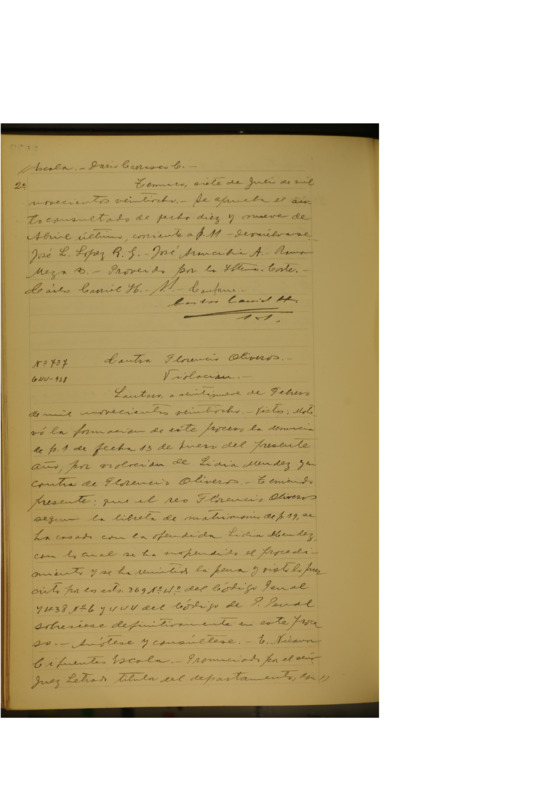 Escala. - Isaías Carrasco C. -
2a
Temuco, siete de Julio de mil
novecientos veintiocho. - Se aprueba el au-
to consultado de fecha diez y nueve de
Abril último, corriente a f. 11 - Devuélvase.
José L. López R. G. - José A. - Ramón
Meza R. - Proveído por la Iltma. Corte. -
Carlos Carriel H. - 
Carlos Carriel H.
Nº 707 Contra Florencio Oliveros. -
Violación. -
Lautaro, a veintinueve de Febrero
de mil novecientos veintiocho. - Vistos: Moti-
vó la formación de este proceso la denuncia
de f. 1 de fecha 13 de Enero del presente
año, por violación de Lidia Mendez y en
contra de Florencio Oliveros. - Teniendo
presente: que el reo Florencio Oliveros
según la libreta de matrimonio de f. 19, se
ha casado con la ofendida Lidia Mendez,
con lo cual se ha suspendido el procedi-
miento y se ha remitido la pena y visto lo prev
isto por el arto 369 Nº 4º del Código Penal
y 438 Nº 6 y del Código de P. Penal
sobreséese definitivamente en este proce-
so. - Anótese y consúltese. - E.
Cifuentes Escala. - Pronunciado por el señor
Juez Letrado titular del departamento,